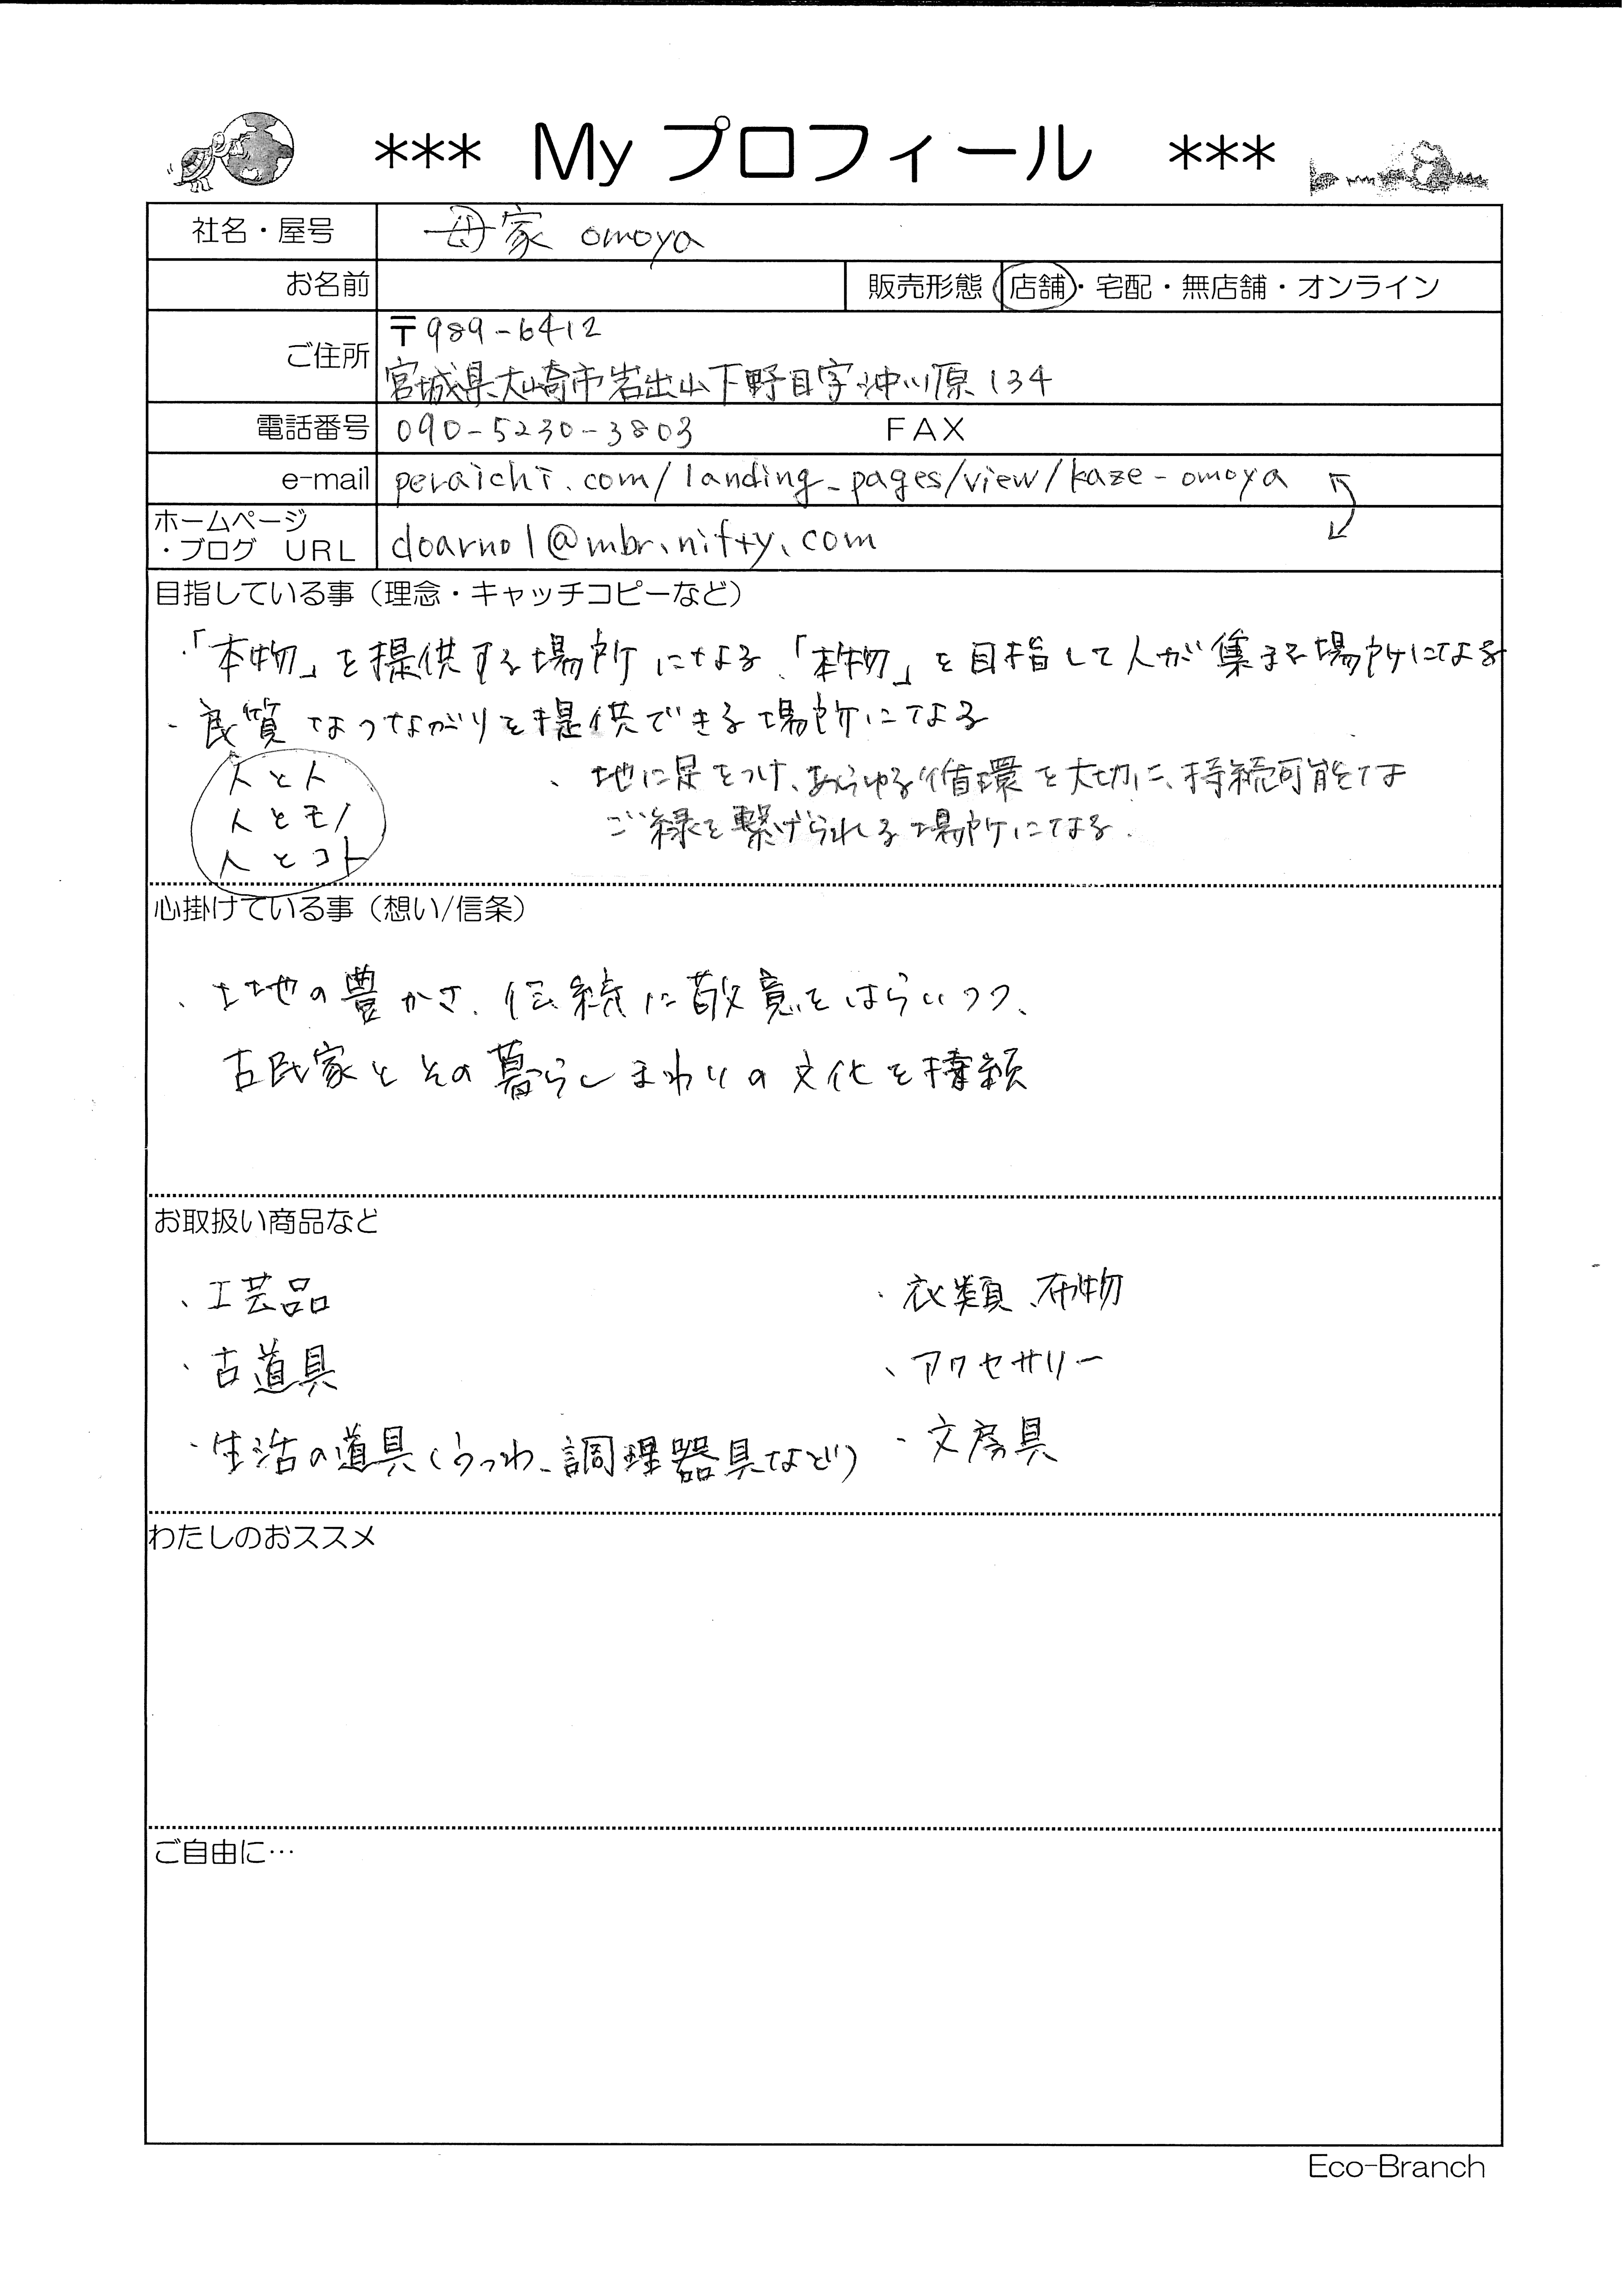 *** My プロフィール ***
社名・屋号 母家 omoya
お名前 販売形態 店舗・宅配・無店舗・オンライン
〒989-6412
ご住所 宮城県大崎市岩出山下野目字沖川原134
電話番号 090-5230-3803 FAX
e-mail peraichi.com/landing_pages/view/kaze-omoya
ホームページ
・ブログ URL doarno1@mbr.nifty.com
目指している事（理念・キャッチコピーなど）
・「本物」を提供する場所になる、「本物」を目指して人が集まる場所になる
・良質なつながりを提供できる場所になる
人と人
人とモノ
人とコト
・地に足をつけ、あらゆる循環を大切に、持続可能な
ご縁を繋げられる場所になる.
心掛けている事（想い/信条）
・土地の豊かさ、伝統に敬意をはらいつつ、
古民家とその暮らしまわりの文化を
お取扱い商品など
・工芸品
・古道具
・生活の道具（うつわ、調理器具など）
・衣類、布物
・アクセサリー
・文房具
わたしのおススメ
ご自由に…
Eco-Branch